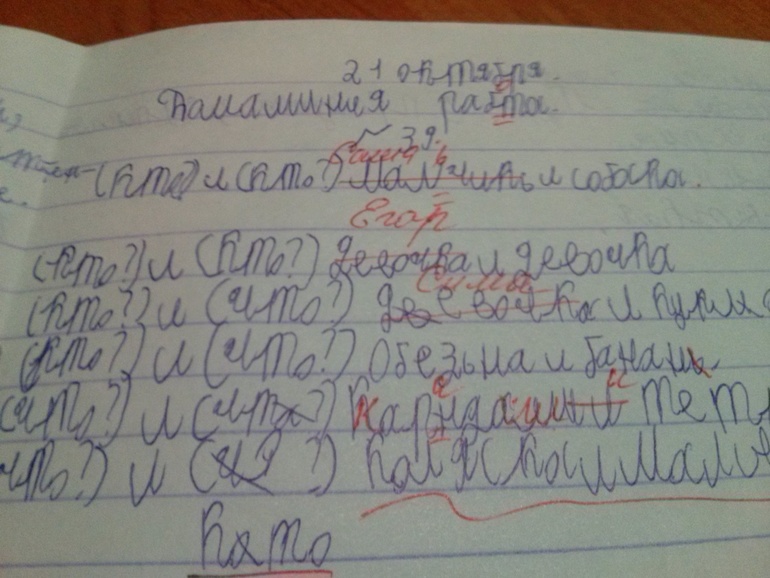 21 октября.
Камашиния работа.
№ 39.
(Кто?) и (Кто?) Малчикь и собака.
Егор
(Кто?) и (Кто?) девочка и девочка
(Кто?) и (Что?) девочка и кукла
(Кто?) и (Что?) Обезьна и бананы
(Что?) и (Что?) Карндаши и тет
Что?) и ( ?) Каляска и мал
Кто